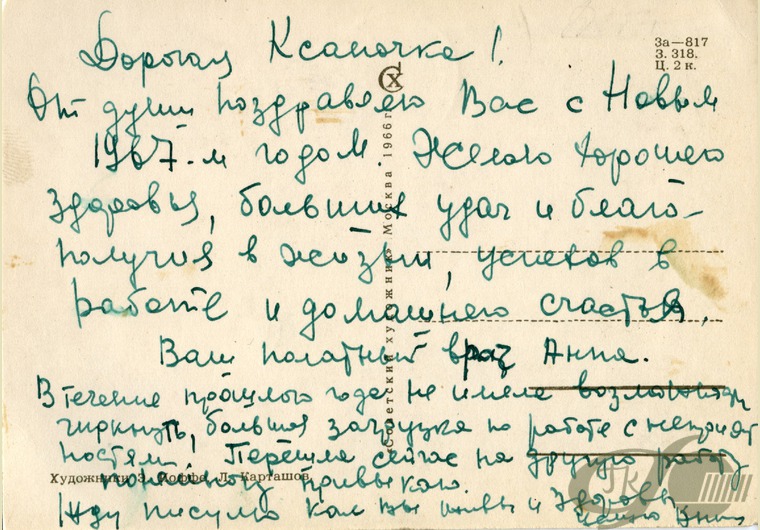 Дорогая Ксаночка!
За—817
З. 318.
Ц. 2 к.
От души поздравляю Вас с Новым
1967-м годом. Желаю хорошего
здоровья, больших удач и благо-
получия в жизни, успехов в
работе и домашнего счастья.
Ваш палатный врач Анна.
В течение прошлого года не имела возможности
чиркнуть, большая загрузка по работе с неприят
ностями! Перешла сейчас на другую работу
привыкаю.
Жду письмо как вы живы и здоровы
Анна
«Советский художник» Москва 1966 г.
Художники З. Иоффе, Л. Карташов